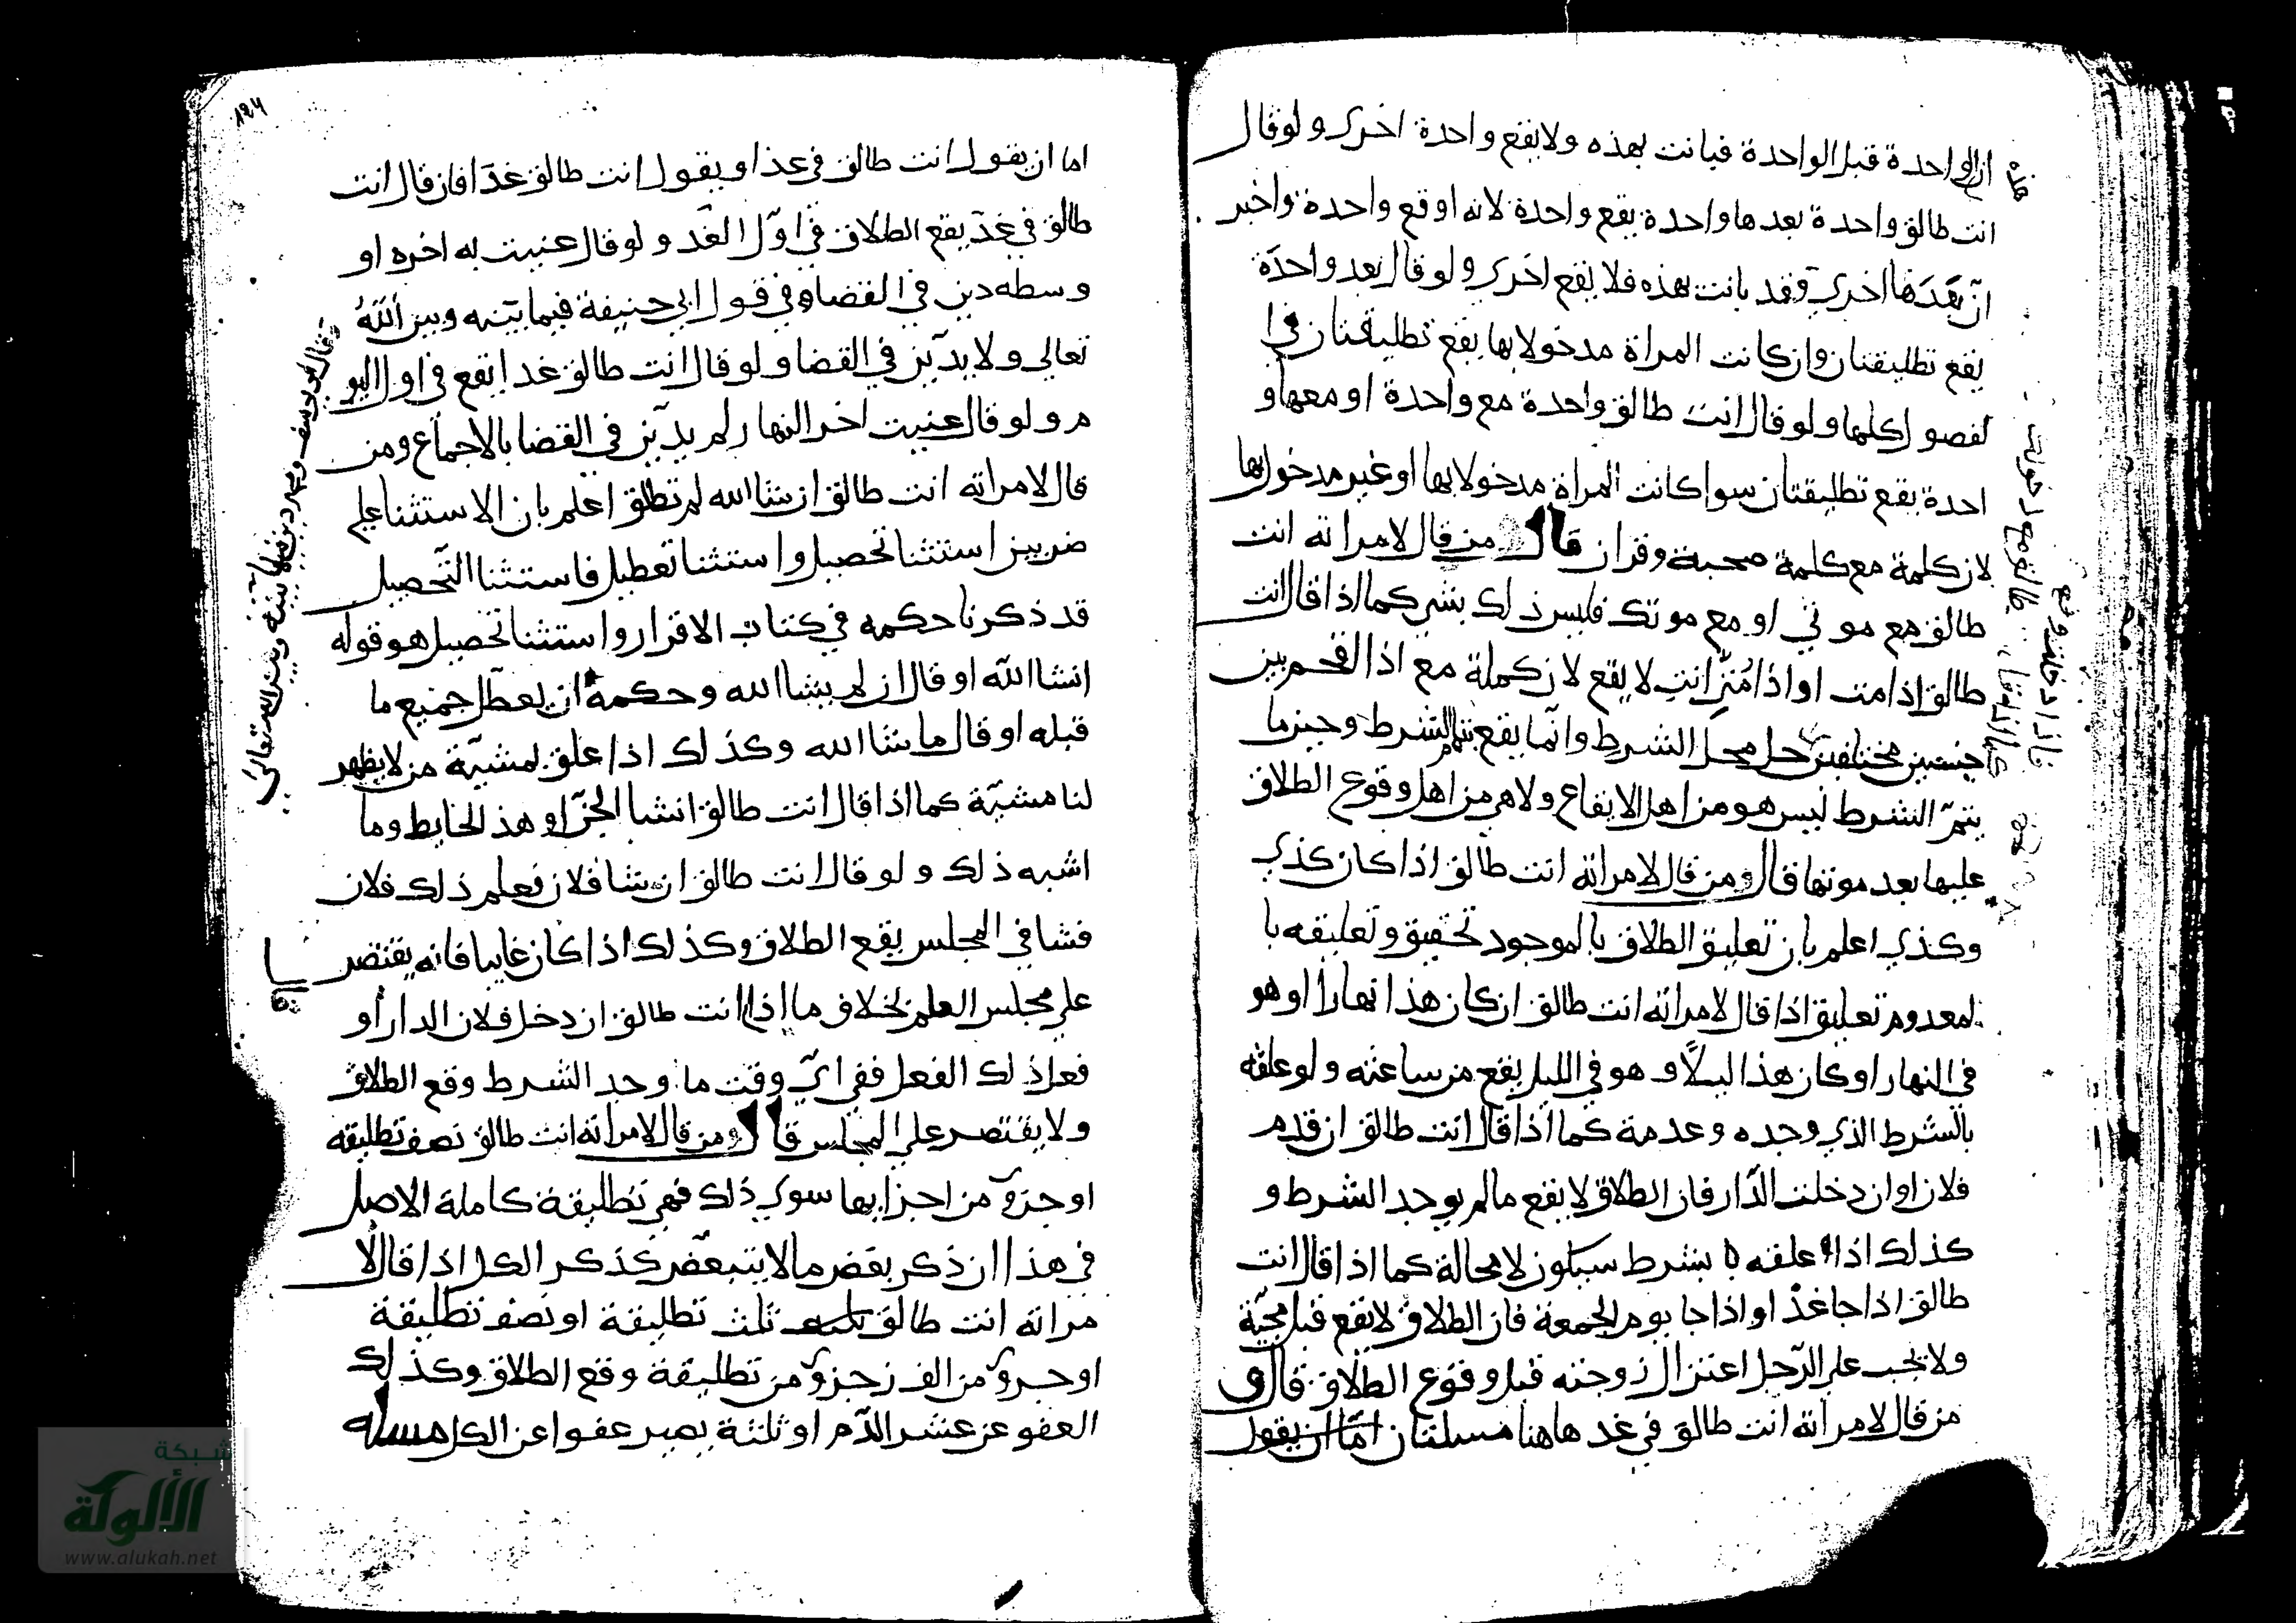 ان الواحدة قبل الواحدة فبانت بهذه ولا يقع واحدة اخرى ولو قال
انت طالق واحدة بعدها واحدة يقع واحدة لانه اوقع واحدة واخبر
ان بعدها اخرى وقد بانت بهذه فلا يقع اخرى ولو قال بعد واحدة
يقع تطليقتان وان كانت المراة مدخولا بها يقع تطليقتان في ا
لفصول كلها ولو قال انت طالق واحدة مع واحدة او معها و
احدة يقع تطليقتان سوا كانت المراة مدخولا بها او غير مدخول بها
لان كلمة مع كلمة صحبة وقران قال ومن قال لامراته انت
طالق مع موتي او مع موتك فليس ذلك بشي كما اذا قال انت
طالق اذا مت او اذا مت انت لا يقع لان كملة مع اذا القحم بين
جنسين مختلفين حل محل الشرط وانما يقع بتمام الشرط وحين ما
يتم الشرط ليس هو من اهل الايقاع ولا هي من اهل وقوع الطلاق
عليها بعد موتها قال ومن قال لامراته انت طالق اذا كان كذي
وكذي اعلم بان تعليق الطلاق بالموجود تحقيق وتعليقه با
لمعدوم تعليق اذا قال لامراته انت طالق ان كان هذا نهارا او هو
في النهار او كان هذا ليلا و هو في الليل يقع من ساعته ولو علقه
بالشرط الذي وجده وعدمة كما اذا قال انت طالق ان قدم
فلان او ان دخلت الدار فان الطلاق لا يقع مالم يوجد الشرط و
كذلك اذا علقه بشرط سيكون لا محالة كما اذا قال انت
طالق اذا جا غد او اذا جا يوم الجمعة فان الطلاق لا يقع قبل مجية
ولا يجب على الرجل اعتزال زوجته قبل وقوع الطلاق قال و
من قال لامراته انت طالق في غد هاهنا مسلتان اما ان يقول
اما ان يقول انت طالق في غد او يقول انت طالق غدا فان قال انت
طالق في غد يقع الطلاق في اول الغد ولو قال عنيت به اخره او
وسطه دين في القضا وفي قول ابي حنيفة فيما بينه وبين الله
تعالى ولا يدين في القضا ولو قال انت طالق غدا يقع في اول اليو
م ولو قال عنيت اخر النهار لم يدين في القضا بالاجماع ومن
قال لامراته انت طالق ان شا الله لم تطلق اعلم بان الاستثنا على
ضربين استثنا تحصيل واستثنا تعطيل فاستثنا التحصيل
قد ذكرنا حكمه في كتاب الاقرار واستثنا تحصيل هو قوله
انشا الله او قال ان لم يشا الله وحكمه ان يعطل جميع ما
قبله او قال ما شا الله وكذلك اذا علق لمشية من لا يظهر
لنا مشية كما اذا قال انت طالق انشا الجن او هذ الحايط وما
اشبه ذلك ولو قال انت طالق ان شا فلان فعلم ذلك فلان
فشا في المجلس يقع الطلاق وكذلك اذا كان غايبا فانه يقتصر
على مجلس العلم بخلاف ما اذا انت طالق ان دخل فلان الدار او
فعل ذلك الفعل ففي اي وقت ما وجد الشرط وقع الطلاق
ولا يقتصر على المجلس قال ومن قال لامراته انت طالق نصف تطليقه
او جزو من اجزايها سوى ذلك فهي تطليقة كاملة الاصل
في هذا ان ذكر بعض مالا يتبعض كذكر الكل اذا قال لا
مراته انت طالق ثلث تطليقة او نصف تطليقة
او جزو من الف جزو من تطليقة وقع الطلاق وكذلك
العفو عن عشر الدم او ثلثة يصير عفوا عن الكل مسلة
وقال ابو يوسف ومحمد دين فيما بينه وبين الله تعالى
شبكة
الألوكة
www.alukah.net